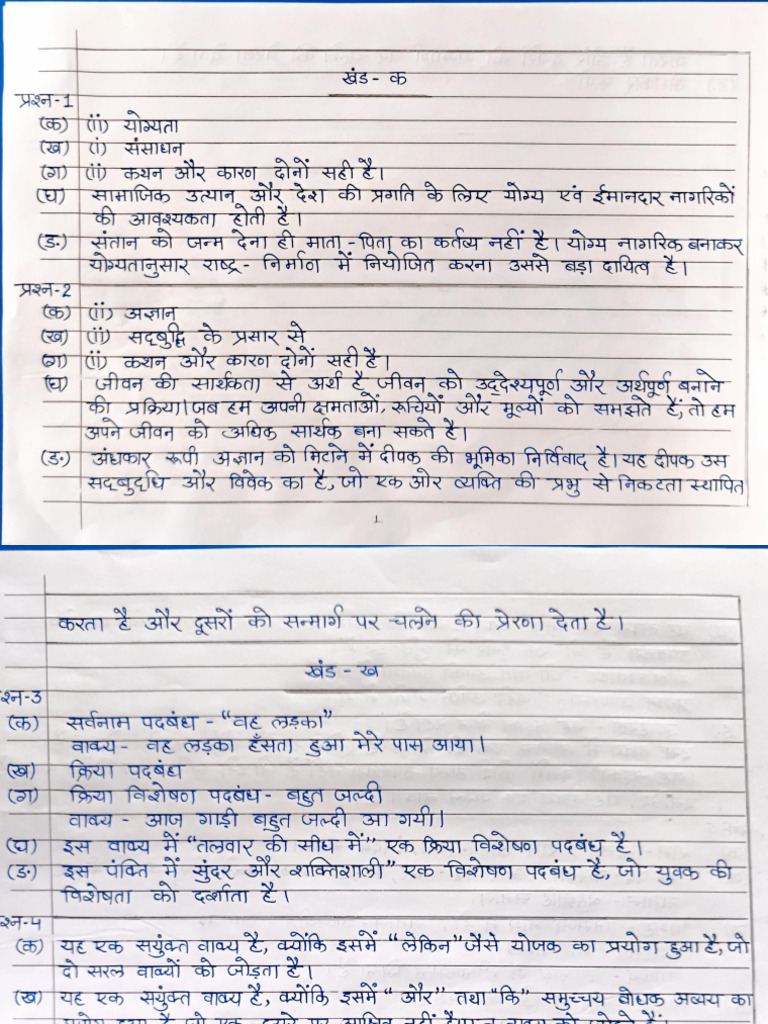 खंड - क
प्रश्न-1
(क) (ii) योग्यता
(ख) (i) संसाधन
(ग) (ii) कथन और कारण दोनों सही है।
(घ) सामाजिक उत्थान और देश की प्रगति के लिए योग्य एवं ईमानदार नागरिकों
की आवश्यकता होती है।
(ङ) संतान को जन्म देना ही माता-पिता का कर्तव्य नहीं है। योग्य नागरिक बनाकर
योग्यतानुसार राष्ट्र-निर्माण में नियोजित करना उससे बड़ा दायित्व है।
प्रश्न-2
(क) (ii) अज्ञान
(ख) (ii) सद्बुद्धि के प्रसार से
(ग) (ii) कथन और कारण दोनों सही है।
(घ) जीवन की सार्थकता से अर्थ है जीवन को उद्देश्यपूर्ण और अर्थपूर्ण बनाने
की प्रक्रिया। जब हम अपनी क्षमताओं, रूचियों और मूल्यों को समझते हैं, तो हम
अपने जीवन को अधिक सार्थक बना सकते है।
(ङ) अंधकार रूपी अज्ञान को मिटाने में दीपक की भूमिका निर्विवाद है। यह दीपक उस
सद्बुद्धि और विवेक का है, जो एक ओर व्यक्ति की प्रभु से निकटता स्थापित
1
करता है और दूसरों को सन्मार्ग पर चलने की प्रेरणा देता है।
खंड - ख
श्न-3
(क) सर्वनाम पदबंध - "वह लड़का"
वाक्य - वह लड़का हँसता हुआ मेरे पास आया।
(ख) क्रिया पदबंध
(ग) क्रिया विशेषण पदबंध - बहुत जल्दी
वाक्य - आज गाड़ी बहुत जल्दी आ गयी।
(घ) इस वाक्य में "तलवार की सीध में" एक क्रिया विशेषण पदबंध है।
(ङ) इस पंक्ति में सुंदर और शक्तिशाली" एक विशेषण पदबंध है, जो युवक की
विशेषता को दर्शाता है।
श्न-4
(क) यह एक सयुंक्त वाक्य है, क्योंकि इसमें "लेकिन" जैसे योजक का प्रयोग हुआ है, जो
दो सरल वाक्यों को जोड़ता है।
(ख) यह एक सयुंक्त वाक्य है, क्योंकि इसमें "और" तथा "कि" समुच्चय बोधक अव्यय का